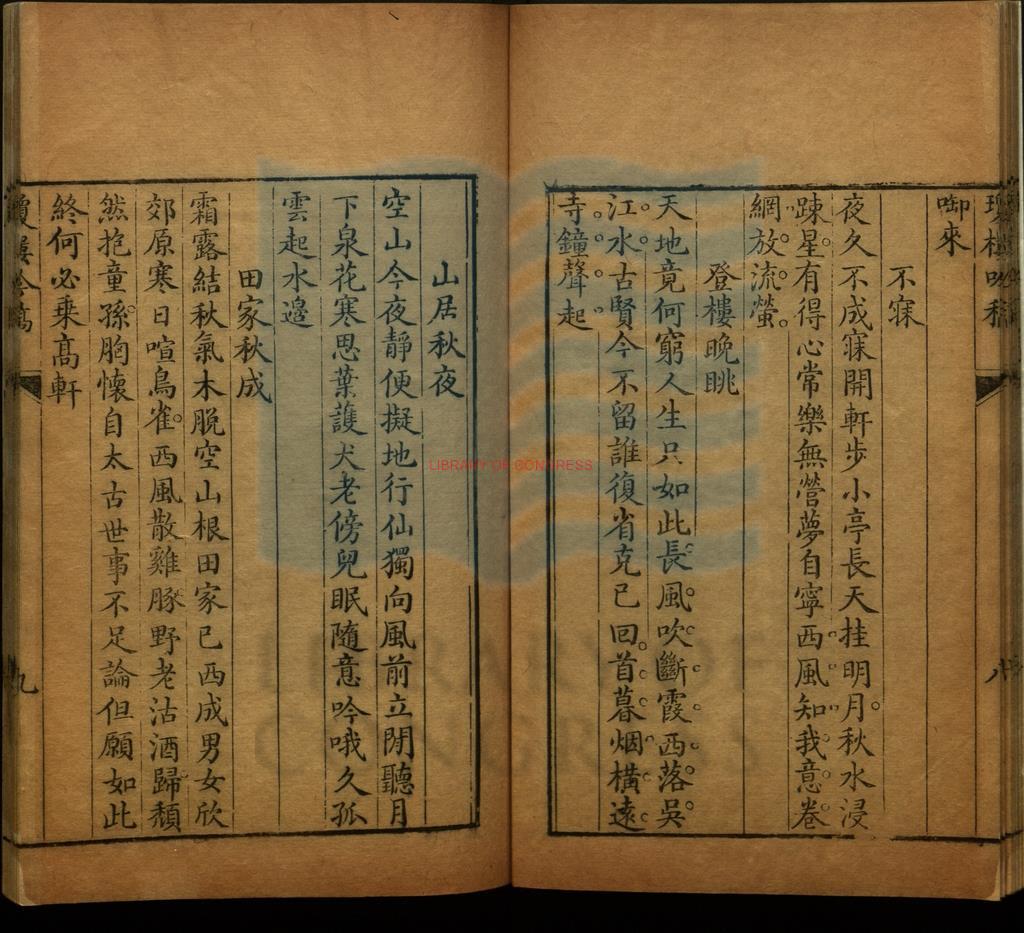 啣來
不寐
夜久不成寐開軒步小亭長天挂明月秋水浸
踈星有得心常樂無營夢自寧西風知我意卷
網放流螢
登樓晚眺
天地竟何窮人生只如此長風吹斷霞西落吳
江水古賢今不留誰復省克已回首暮烟橫遠
寺鐘聲起
八
山居秋夜
空山今夜靜便擬地行仙獨向風前立閒聽月
下泉花寒思葉護犬老傍兒眠隨意吟哦久孤
雲起水邊
田家秋成
霜露結秋氣木脫空山根田家已西成男女欣
郊原寒日喧鳥雀西風散雞豚野老沽酒歸頹
然抱童孫胸懷自太古世事不足論但願如此
終何必乗髙軒
九
LIBRARY OF CONGRESS